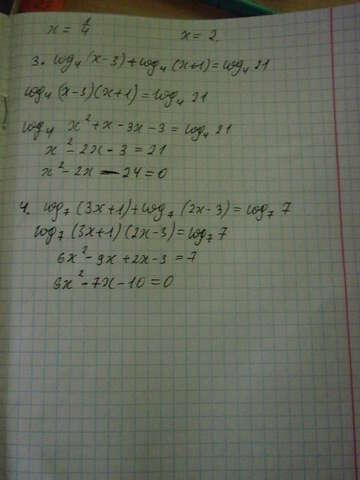 x = 1/4    x = 2
3. log₄(x-3)+log₄(x+1)=log₄21
log₄(x-3)(x+1)=log₄ 21
log₄ x²+x-3x-3=log₄21
x²-2x-3=21
x²-2x-24=0
4. log₇(3x+1)+log₇(2x-3)=log₇ 7
log₇(3x+1)(2x-3)=log₇ 7
6x²-9x+2x-3=7
6x²-7x-10=0